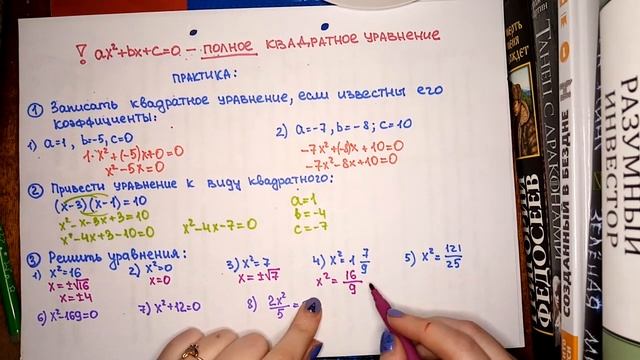 ! ax²+bx+c=0 – ПОЛНОЕ КВАДРАТНОЕ УРАВНЕНИЕ
ПРАКТИКА:
① Записать квадратное уравнение, если известны его
коэффициенты:
1) a=1, b=-5, c=0
1·x²+(-5)x+0=0
x²-5x=0
2) a=-7, b=-8; c=10
-7x²+(-8)x+10=0
-7x²-8x+10=0
② Привести уравнение к виду квадратного:
(x-3)(x-1)=10
x²-x-3x+3=10
x²-4x+3-10=0
x²-4x-7=0
a=1
b=-4
c=-7
③ Решить уравнения:
1) x²=16
x=±√16
x=±4
2) x²=0
x=0
3) x²=7
x=±√7
4) x²=1 7/9
x²=16/9
5) x²=121/25
6) x²-169=0
7) x²+12=0
8) 2x²/5=
ФЕДОСЕЕВ
ТАНЕЦ С ДРАКОНАМИ
СОЗДАННЫЙ В БЕЗДНЕ
РАЗУМНЫЙ
ИНВЕСТОР